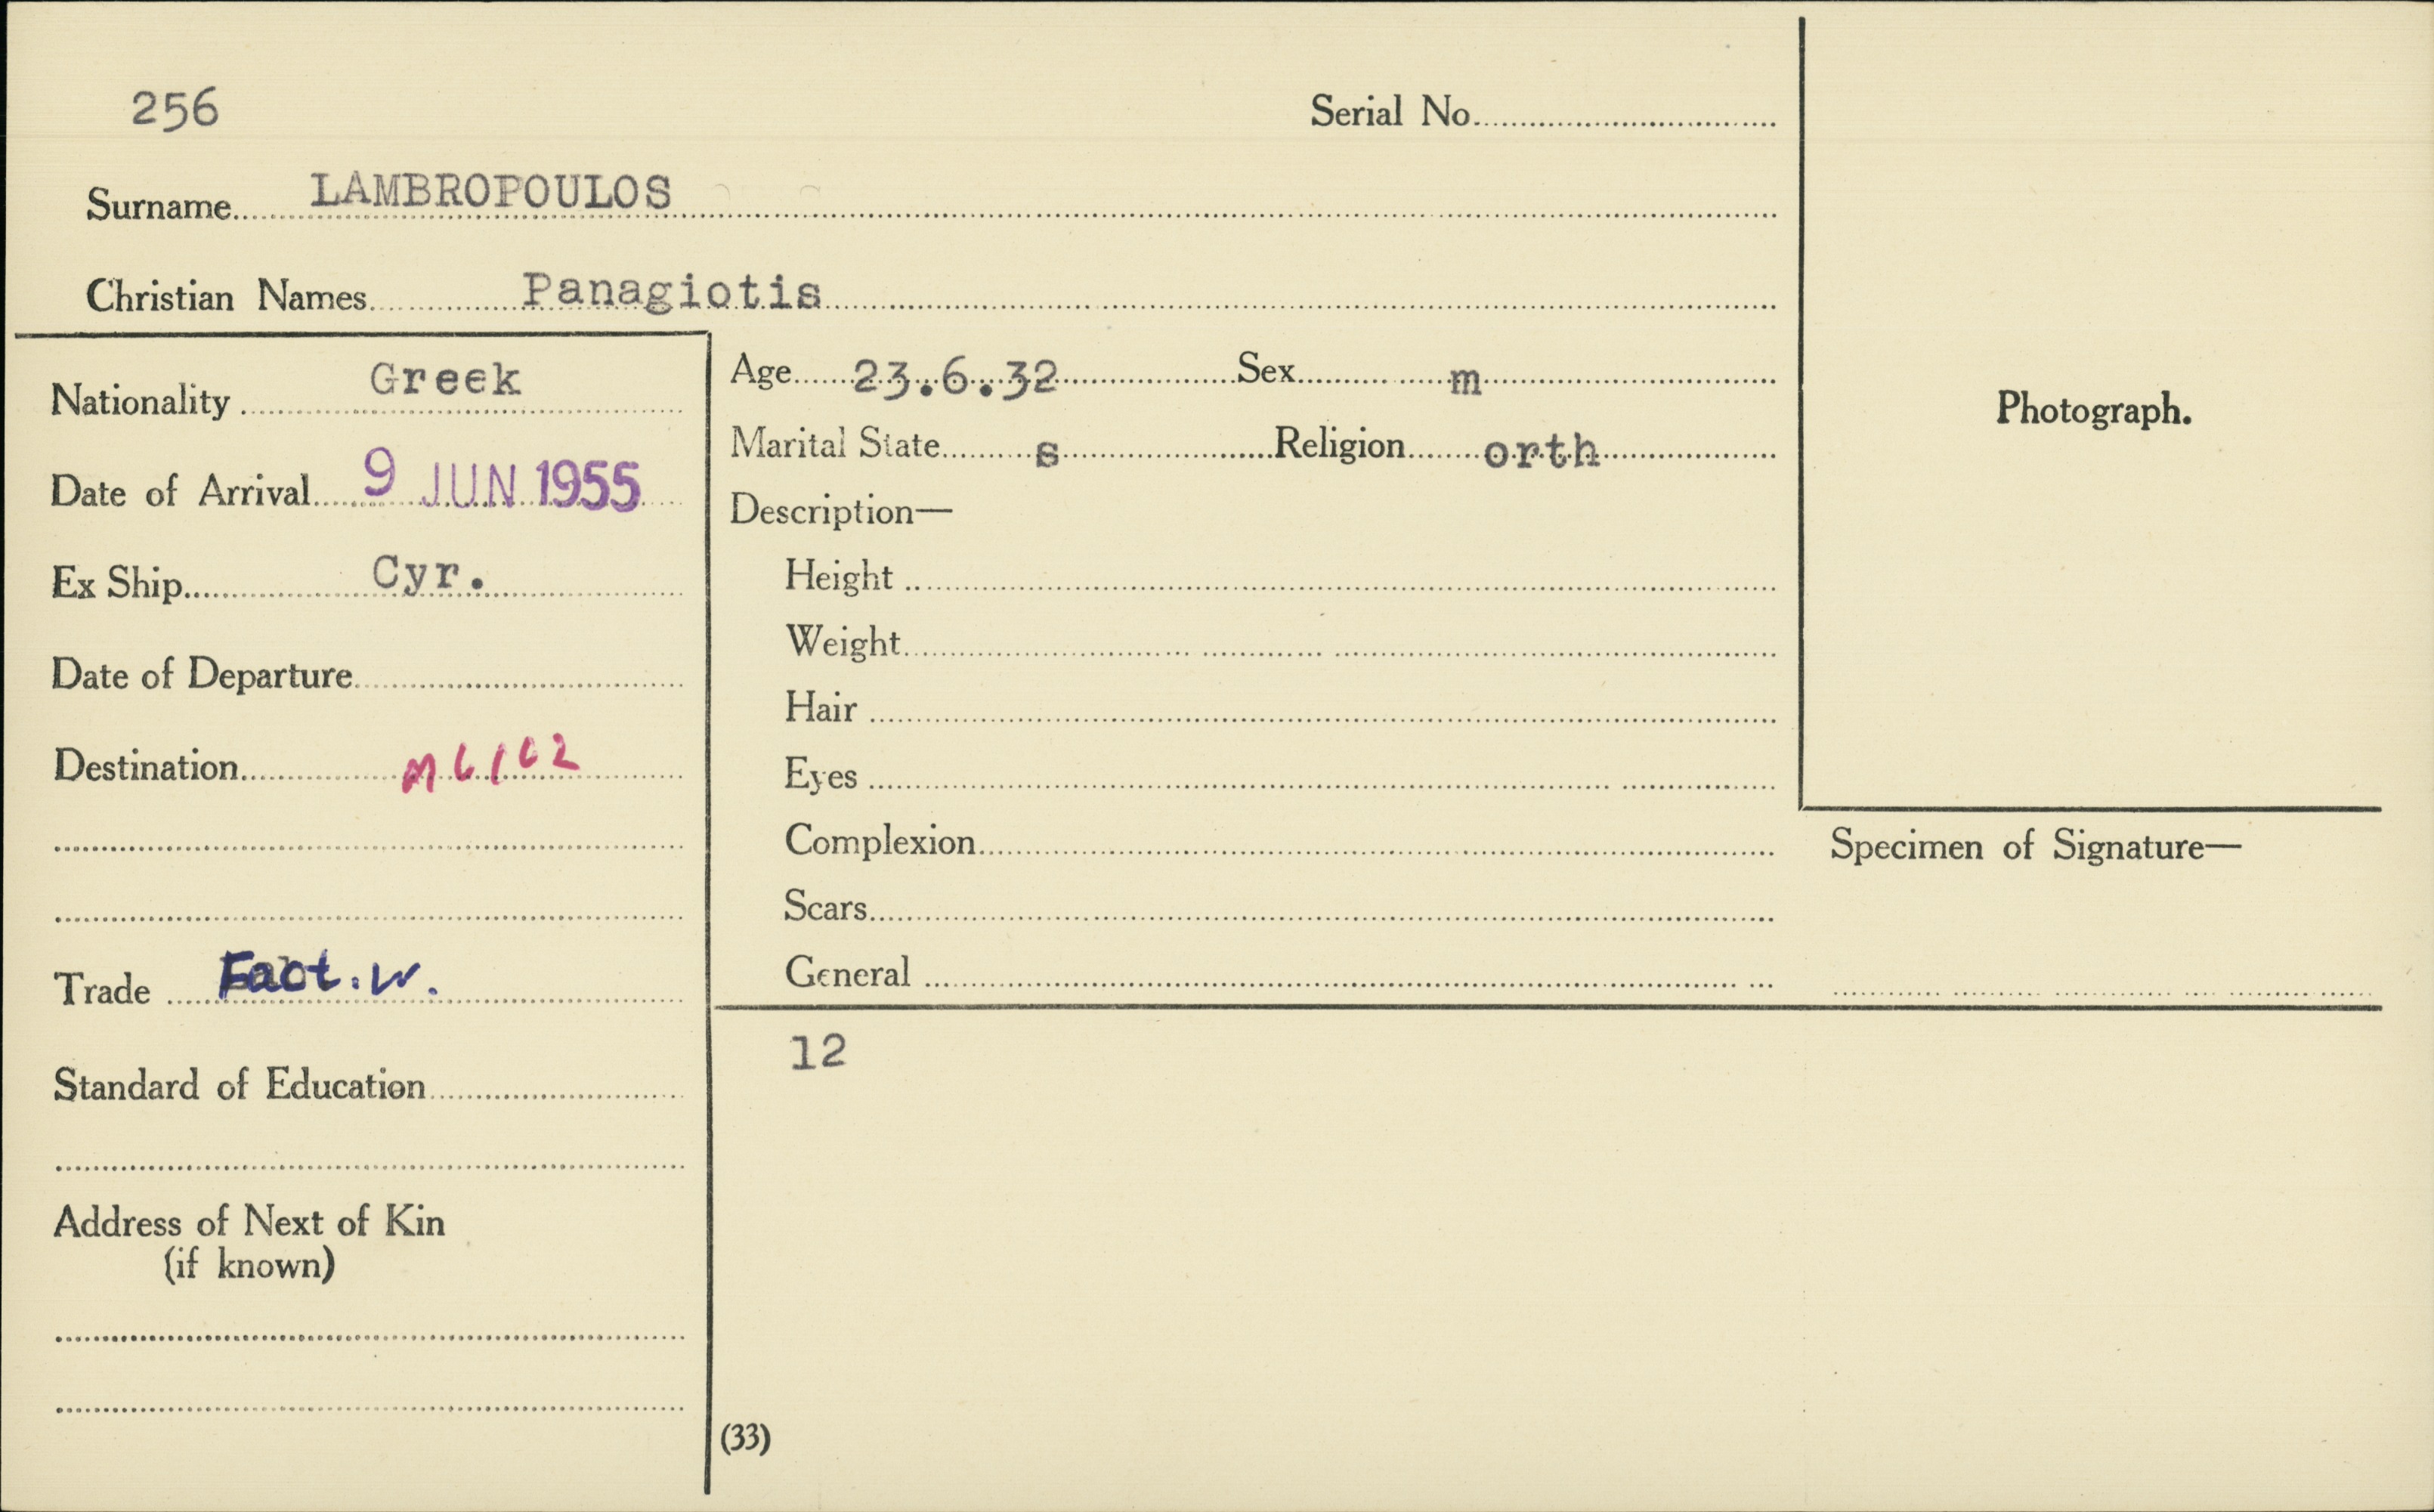 256
Serial No.
Surname LAMBROPOULOS
Christian Names Panagiotis
Nationality Greek
Date of Arrival 9 JUN 1955
Ex Ship Cyr.
Date of Departure
Destination
Trade Fact. W.
Standard of Education
Address of Next of Kin
(if known)
Age 23.6.32 Sex m
Marital State s Religion orth
Description—
Height
Weight
Hair
Eyes
Complexion
Scars
General
12
(33)
Photograph.
Specimen of Signature—